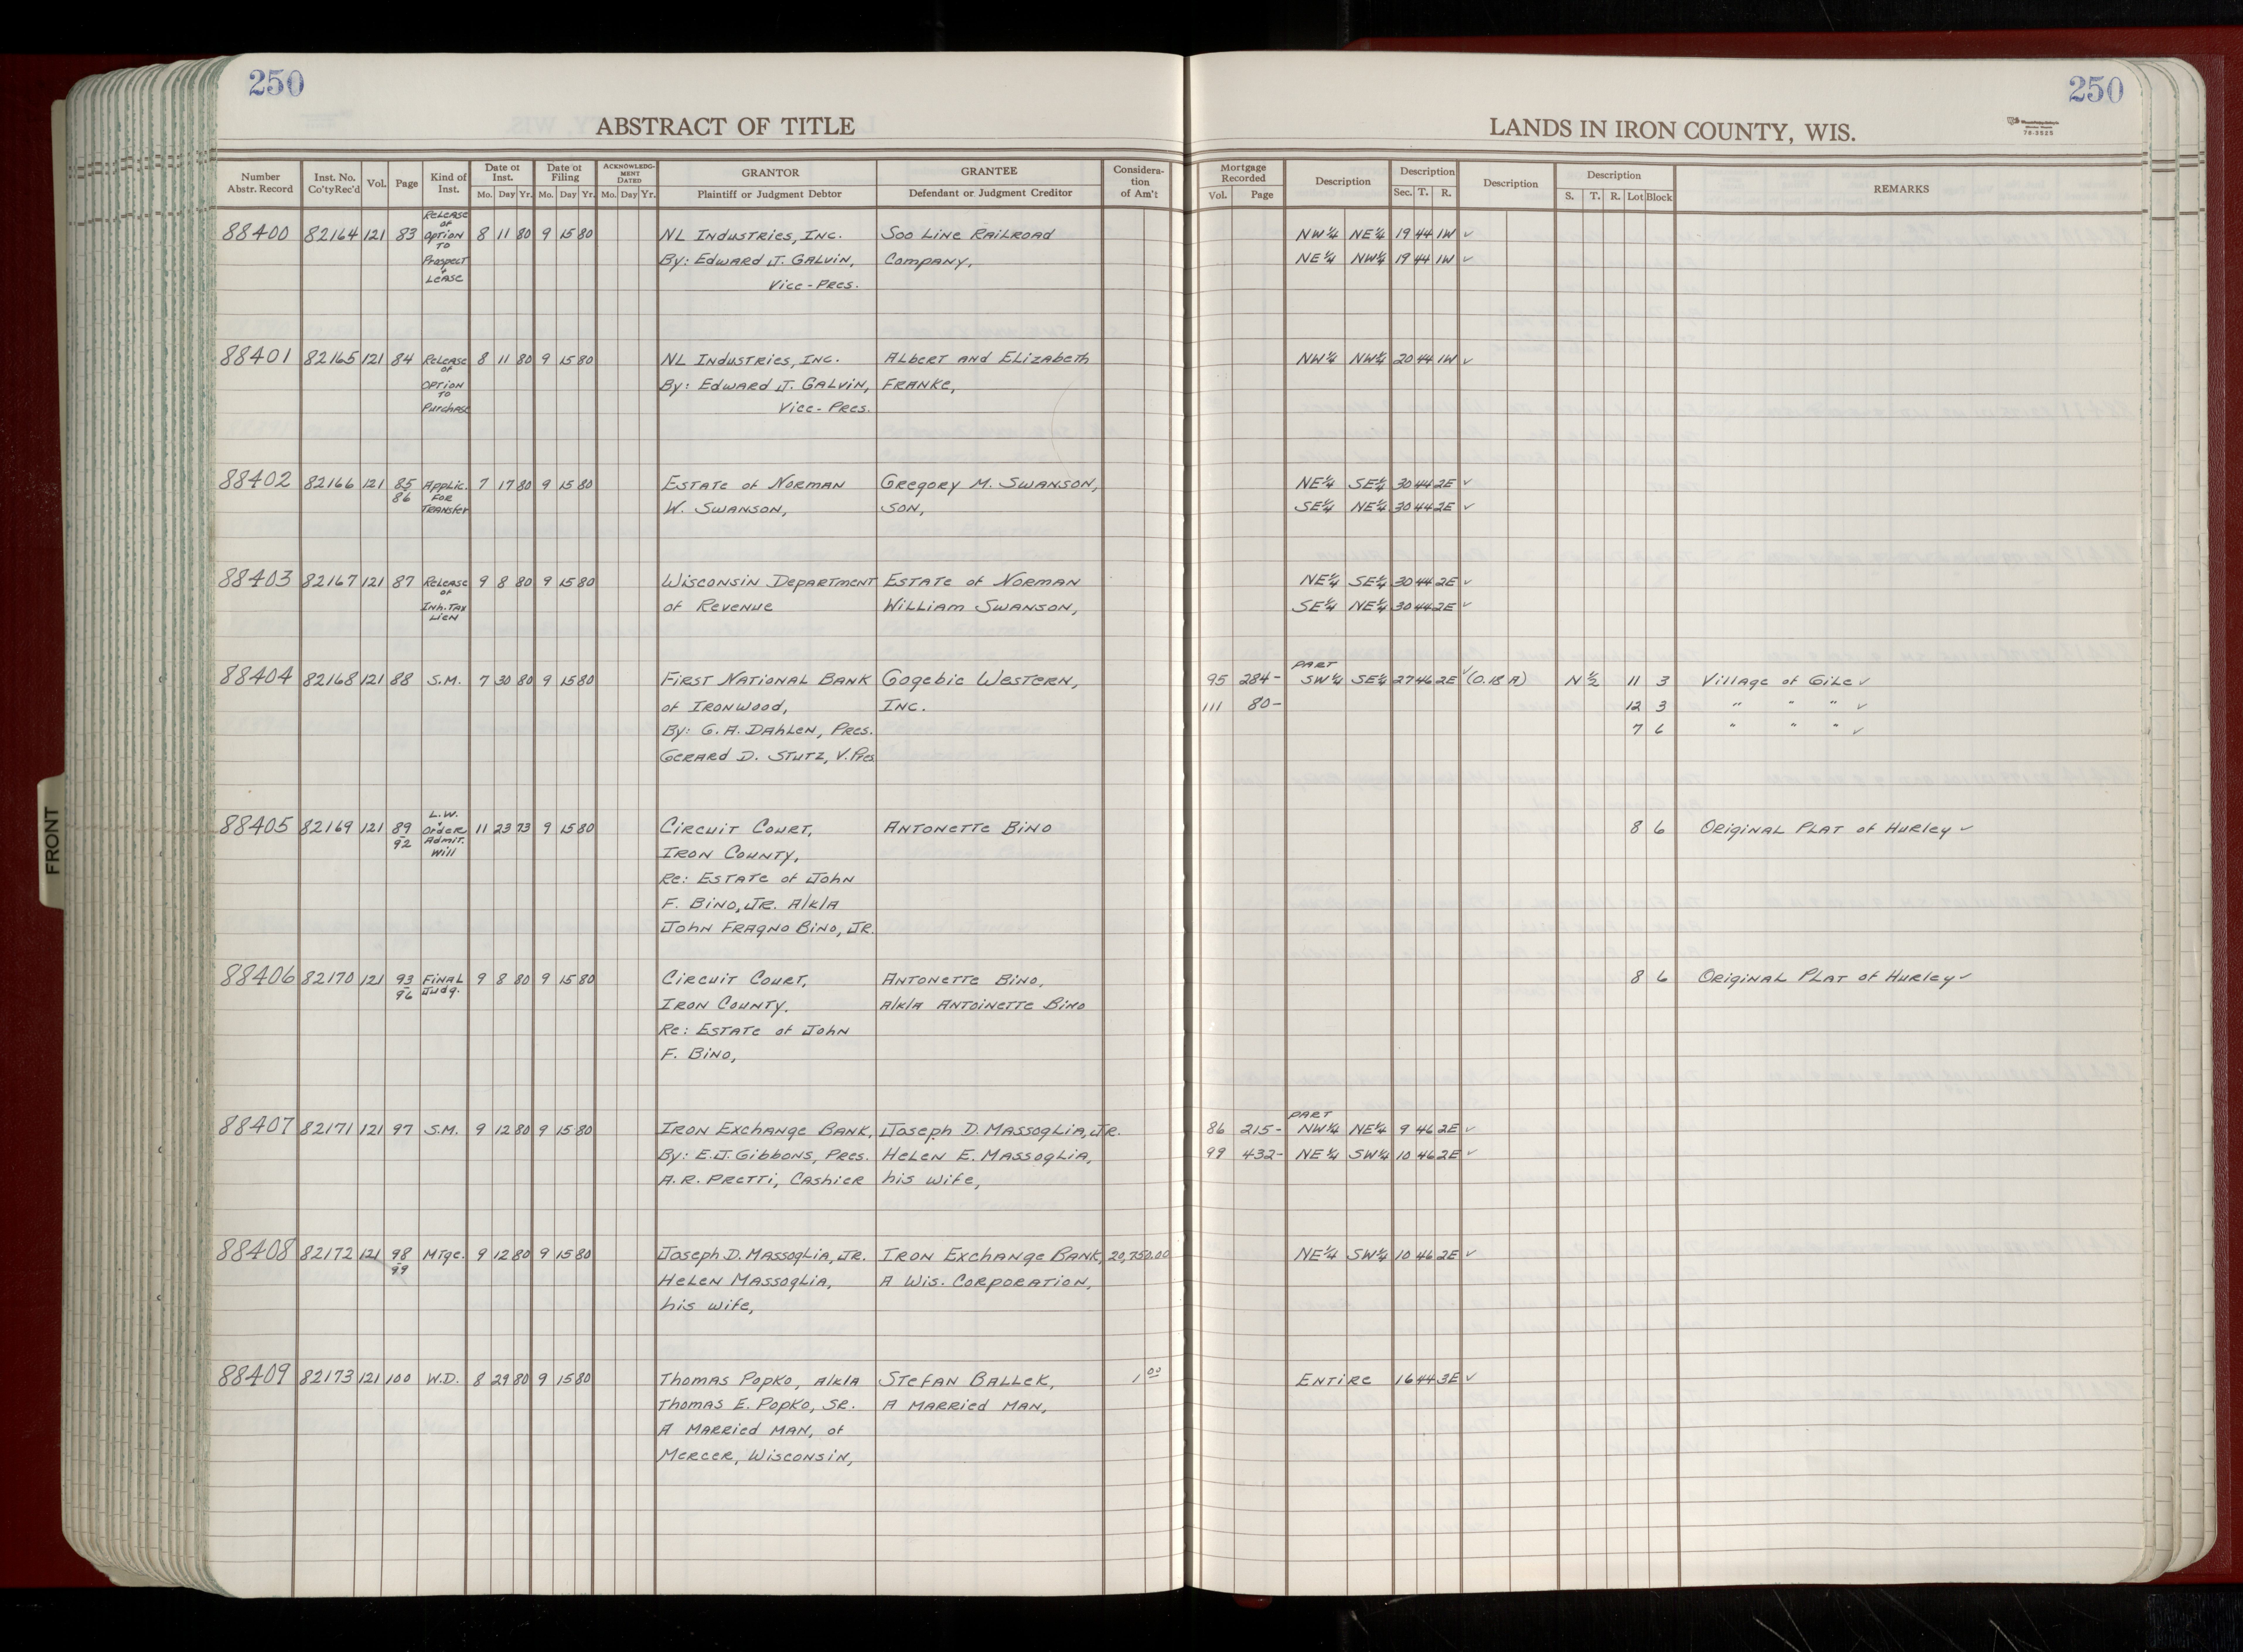 250
250
ABSTRACT OF TITLE
LANDS IN IRON COUNTY, WIS.
78-3525
Number Abstr. Record | Inst. No. Co'ty Rec'd | Vol. | Page | Kind of Inst. | Date of Inst. Mo. Day Yr. | Date of Filing Mo. Day Yr. | ACKNOWLEDGMENT DATED Mo. Day Yr. | GRANTOR Plaintiff or Judgment Debtor | GRANTEE Defendant or Judgment Creditor | Consideration of Am't | Mortgage Recorded Vol. Page | Description | Description Sec. T. R. | Description | Description S. T. R. Lot Block | REMARKS
Release
of
88400 82164 121 83 Option 8 11 80 9 15 80 NL Industries, Inc. Soo Line Railroad NW¼ NE¼ 19 44 1W ✓
to
Prospect By: Edward J. Galvin, Company, NE¼ NW¼ 19 44 1W ✓
&
Lease Vice-Pres.
88401 82165 121 84 Release 8 11 80 9 15 80 NL Industries, Inc. Albert and Elizabeth NW¼ NW¼ 20 44 1W ✓
of
Option By: Edward J. Galvin, Franke,
to
Purchase Vice-Pres.
88402 82166 121 85 Applic. 7 17 80 9 15 80 Estate of Norman Gregory M. Swanson, NE¼ SE¼ 30 44 2E ✓
86 for
Transfer W. Swanson, son, SE¼ NE¼ 30 44 2E ✓
88403 82167 121 87 Release 9 8 80 9 15 80 Wisconsin Department Estate of Norman NE¼ SE¼ 30 44 2E ✓
of
Inh. Tax of Revenue William Swanson, SE¼ NE¼ 30 44 2E ✓
Lien
Part
88404 82168 121 88 S.M. 7 30 80 9 15 80 First National Bank Gogebic Western, 95 284- SW¼ SE¼ 27 46 2E ✓ (0.18 A) N½ 11 3 Village of Gile ✓
of Ironwood, Inc. 111 80- 12 3 " " " ✓
By: G. A. Dahlen, Pres. 7 6 " " " ✓
Gerard D. Stutz, V. Pres
L.W.
&
88405 82169 121 89 Order 11 23 73 9 15 80 Circuit Court, Antonette Bino 8 6 Original Plat of Hurley ✓
-92 Admit.
Will Iron County,
Re: Estate of John
F. Bino, Jr. a/k/a
John Fragno Bino, Jr.
88406 82170 121 93 Final 9 8 80 9 15 80 Circuit Court, Antonette Bino, 8 6 Original Plat of Hurley ✓
-96 Judg.
Iron County. a/k/a Antoinette Bino
Re: Estate of John
F. Bino,
Part
88407 82171 121 97 S.M. 9 12 80 9 15 80 Iron Exchange Bank, Joseph D. Massoglia, Jr. 86 215- NW¼ NE¼ 9 46 2E ✓
By: E.J. Gibbons, Pres. Helen E. Massoglia, 99 432- NE¼ SW¼ 10 46 2E ✓
A.R. Pretti, Cashier his wife,
88408 82172 121 98 Mtge. 9 12 80 9 15 80 Joseph D. Massoglia, Jr. Iron Exchange Bank, 20,750.00 NE¼ SW¼ 10 46 2E ✓
-99
Helen Massoglia, A Wis. Corporation,
his wife,
88409 82173 121 100 W.D. 8 29 80 9 15 80 Thomas Popko, a/k/a Stefan Ballek, 1.00 Entire 16 44 3E ✓
Thomas E. Popko, Sr. A married man,
A married man, of
Mercer, Wisconsin,
FRONT